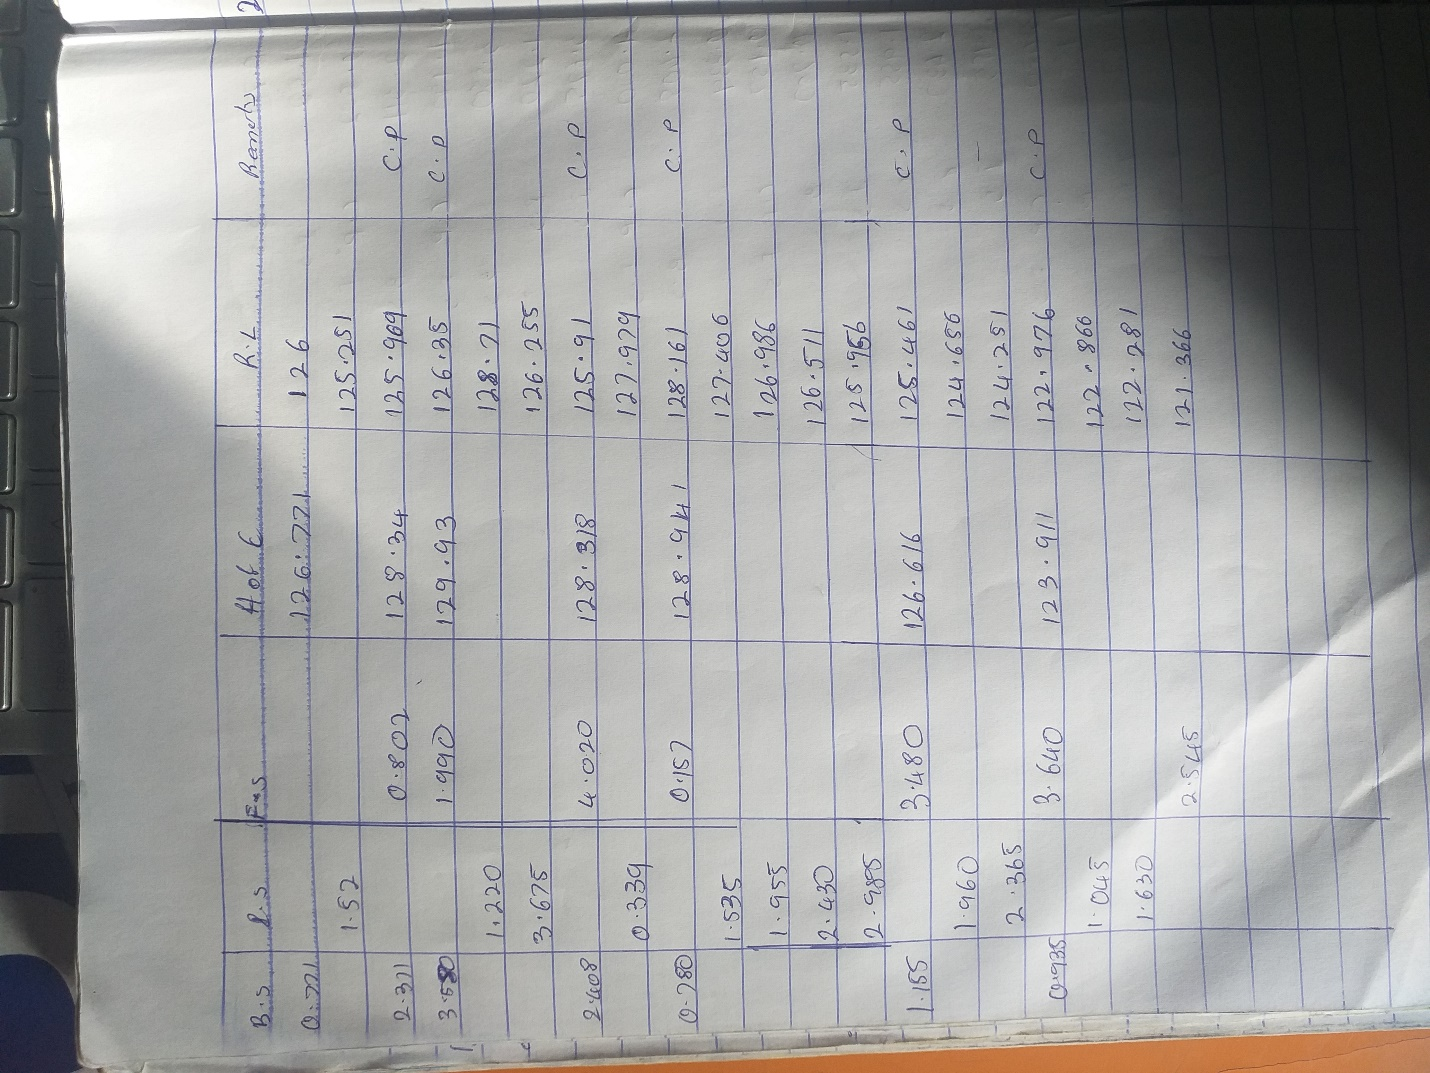 B.S I.S F.S H of C R.L Remarks
0.771 126.771 126
1.52 125.251
2.371 0.802 128.34 125.969 C.P
3.580 1.990 129.93 126.35 C.P
1.220 128.71
3.675 126.255
2.408 4.020 128.318 125.91 C.P
0.339 127.979
0.780 0.157 128.941 128.161 C.P
1.535 127.406
1.955 126.986
2.430 126.511
2.985 125.956
1.155 3.480 126.616 125.461 C.P
1.960 124.656
2.365 124.251
0.935 3.640 123.911 122.976 C.P
1.045 122.866
1.630 122.281
2.545 121.366